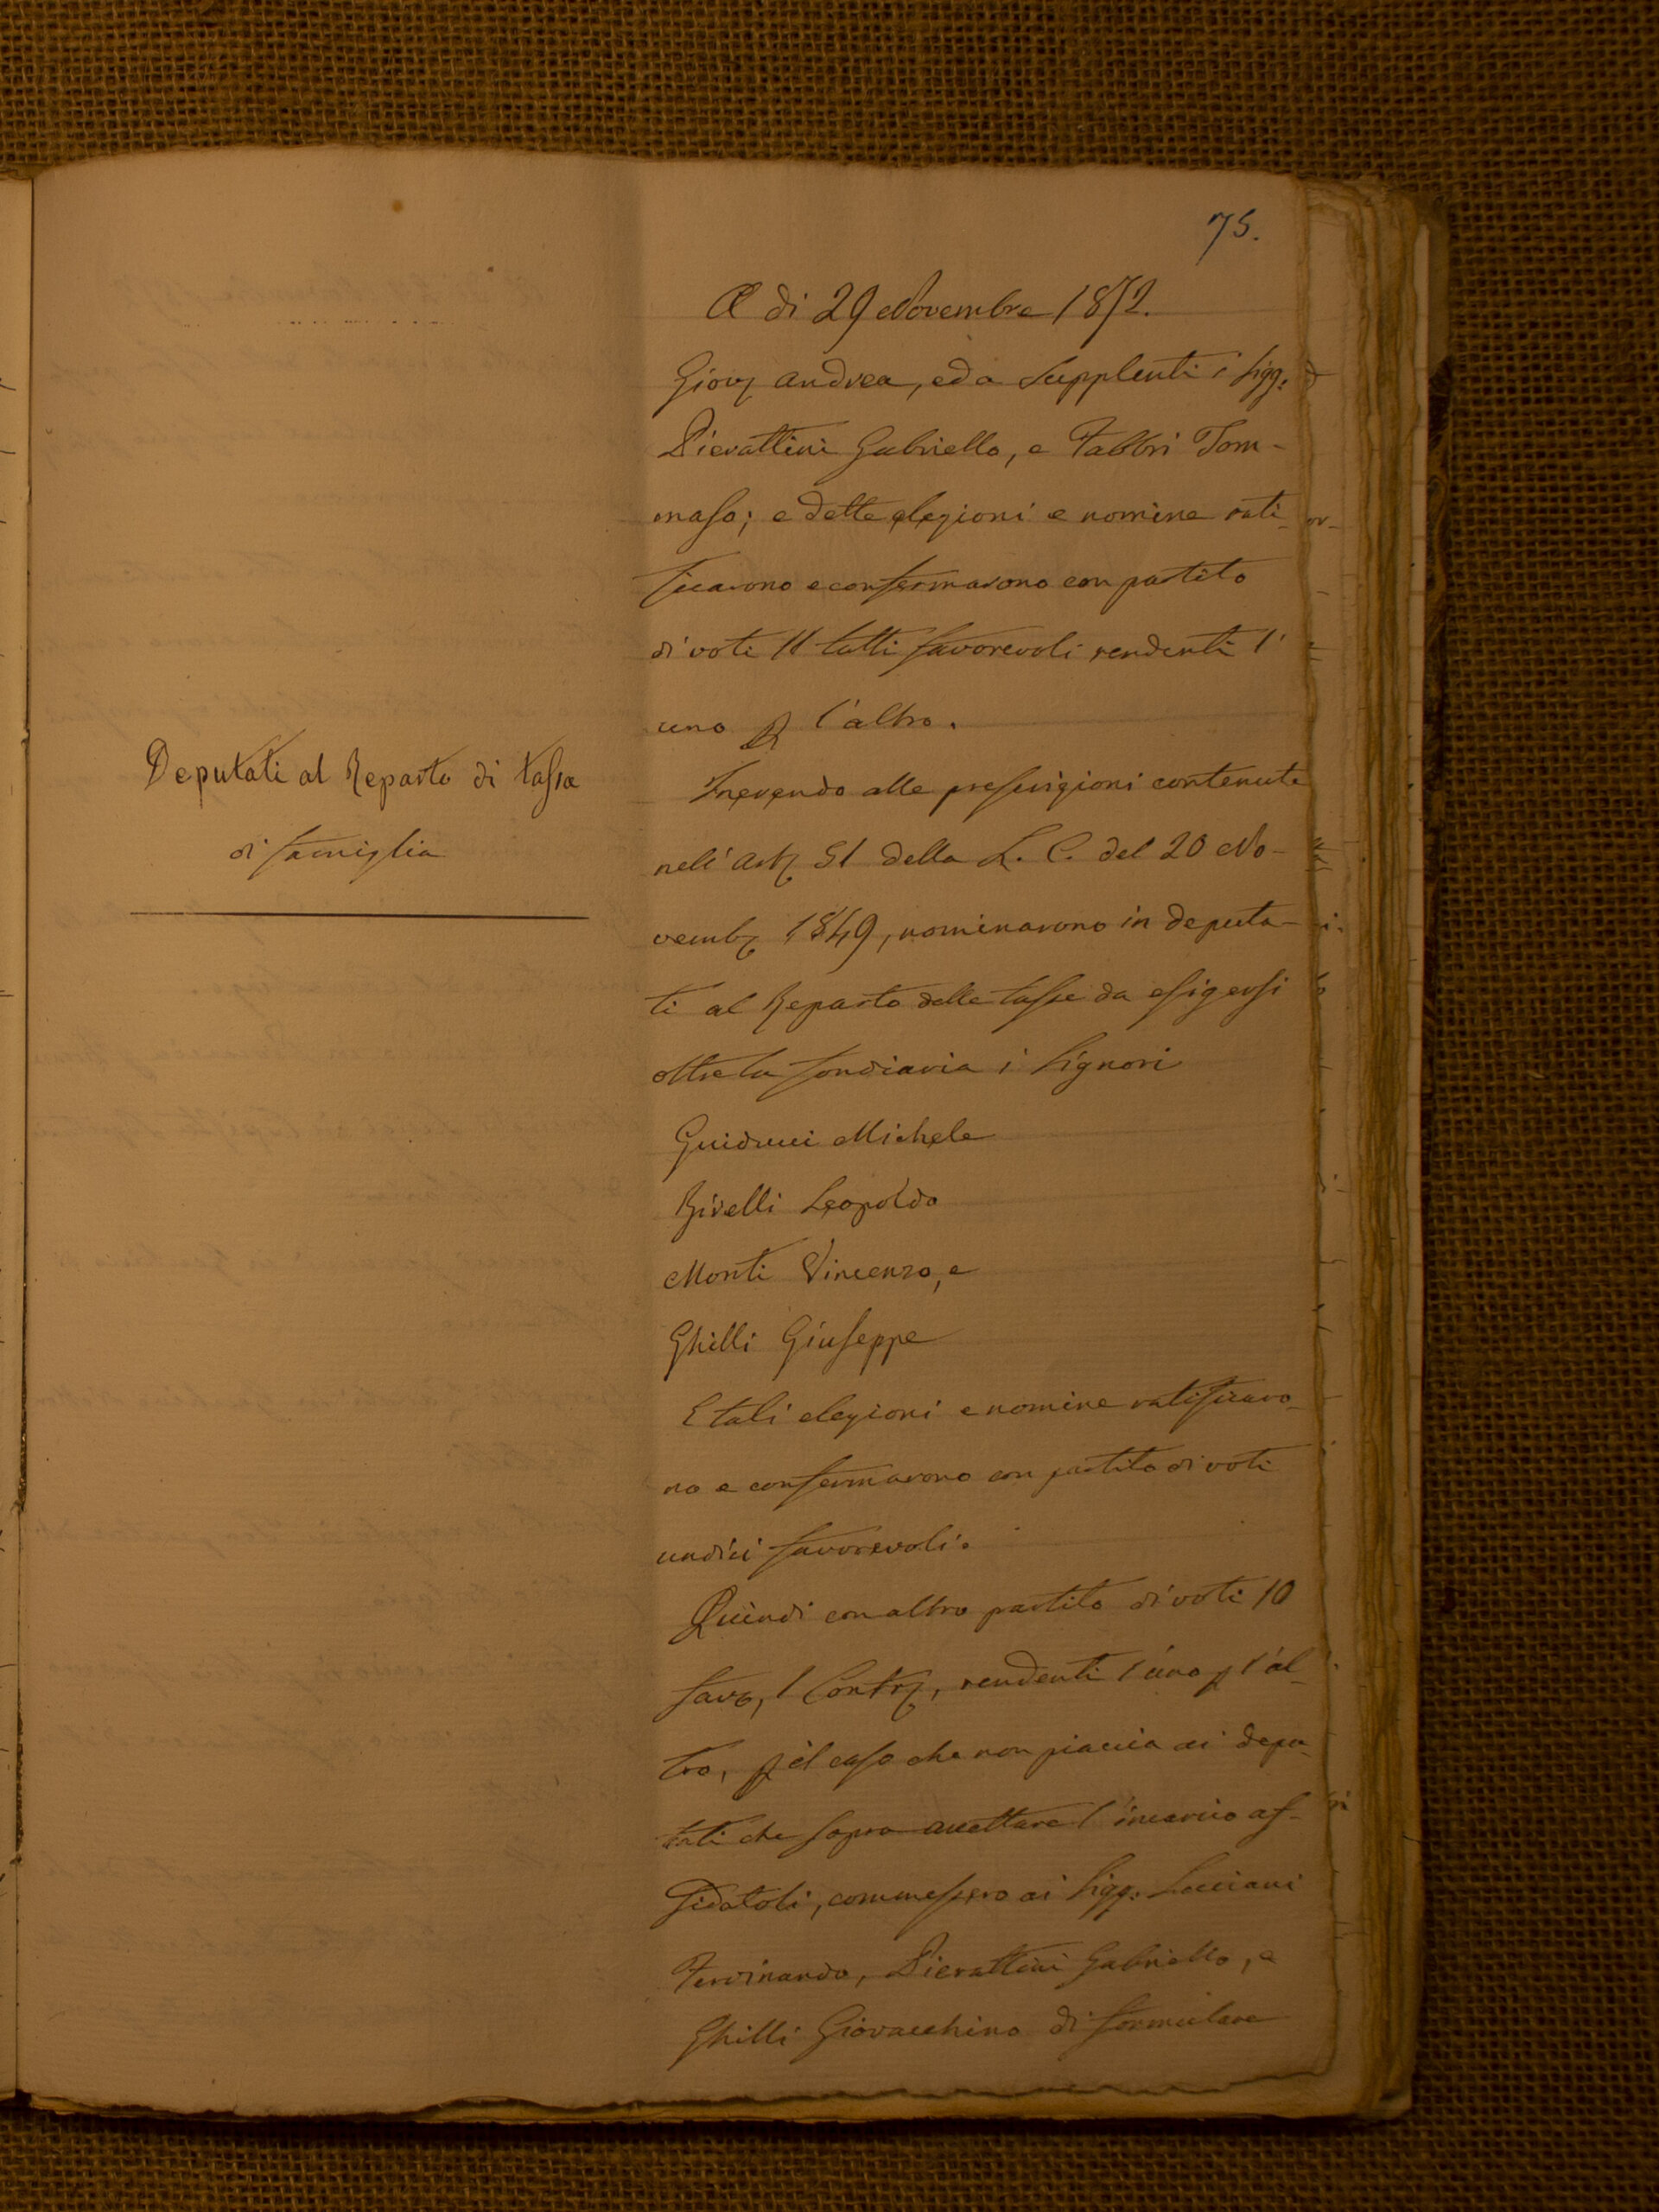 75.
A di 29 Novembre 1872.
Giov Andrea, ed a Supplenti i Sigg.
Pierattini Gabriello, e Fabbri Tom-
maso; e dette elezioni e nomine rati-
ficarono e confermarono con partito
di voti 11 tutti favorevoli rendenti l'
uno p l'altro.
Deputati al Reparto di tassa
di famiglia
Inerendo alle prescrizioni contenute
nell'Art 51 della L. C. del 20 No-
vemb 1849, nominarono in deputa-
ti al Reparto delle tasse da esigersi
oltre la fondiaria i Signori
Guiducci Michele
Rivelli Leopoldo
Monti Vincenzo, e
Ghilli Giuseppe
E tali elezioni e nomine ratificaro-
no e confermarono con partito di voti
undici favorevoli.
Quindi con altro partito di voti 10
fav, 1 Contr, rendenti l'uno p l'al-
tro, p il caso che non piaccia ai depu-
tati che sopra accettare l'incarico af-
fidatoli, commessero ai Sigg. Lucciani
Ferdinando, Pierattini Gabriello, e
Ghilli Giovacchino di formulare